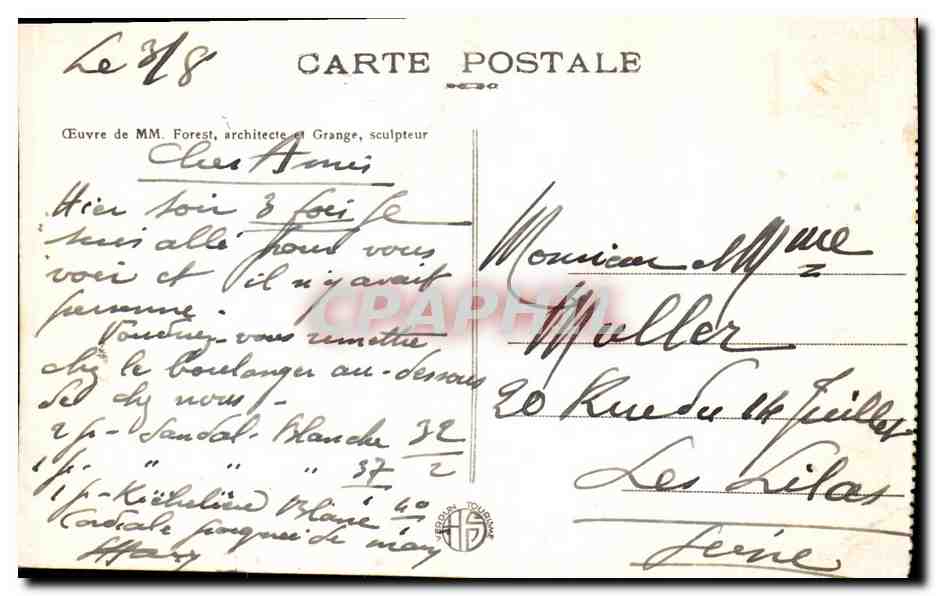 Le 3/8
CARTE POSTALE
Œuvre de MM. Forest, architecte et Grange, sculpteur
Cher Amis
Hier soir 3 fois Je
suis allé pour vous
voir et il n'y avait
personne.
Voudriez-vous remettre
chez le boulanger au-dessous
de chez nous -
2 p- Sandal- Blanche 32/2
1 p- " " " 37
1 p- Richelieu Blanc 40
Cordiale poignée de main
Monsieur et Mme
Muller
20 Rue du 14 Juillet
Les Lilas
Seine
VERDUN TOURISME
CPARHAMA